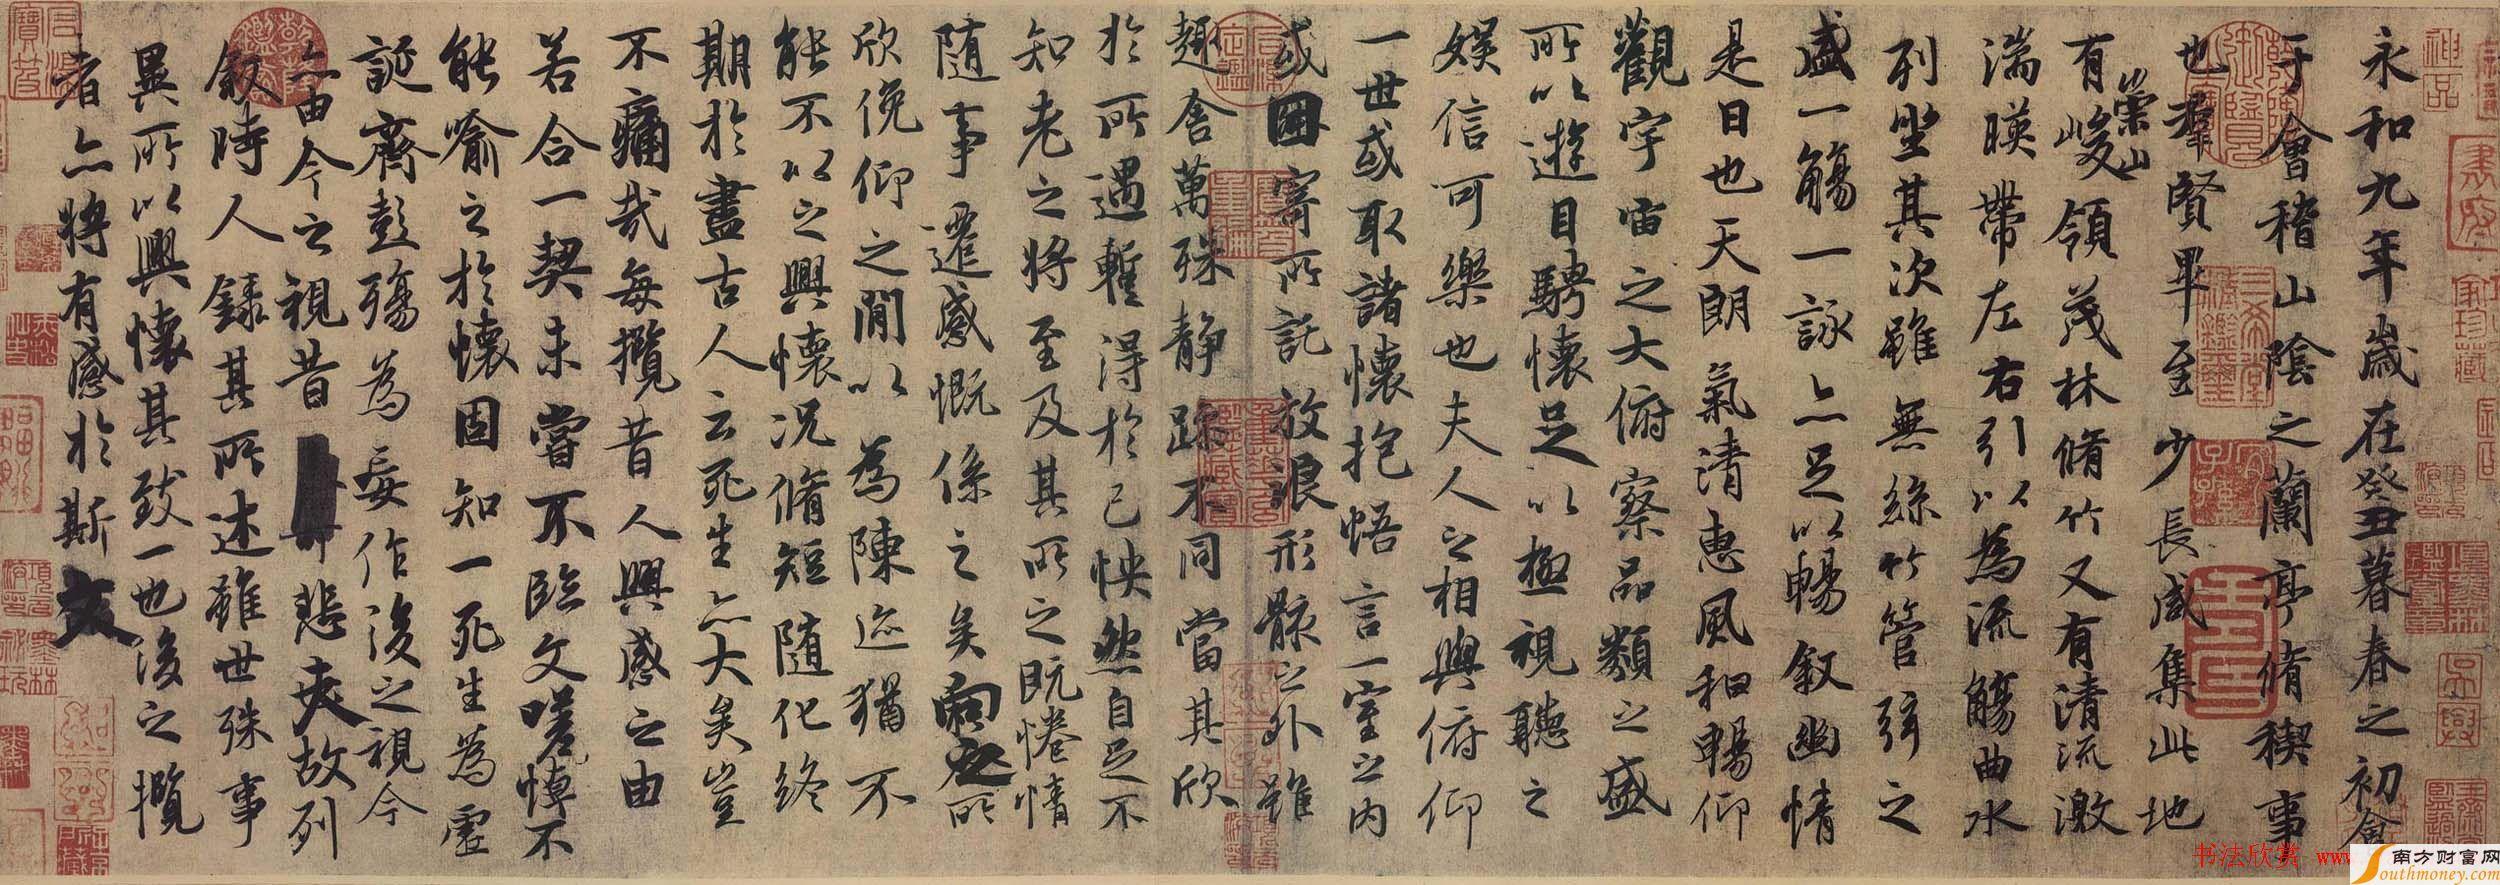 永和九年歲在癸丑暮春之初會
于會稽山陰之蘭亭脩稧事
也羣賢畢至少長咸集此地
有崇山峻領茂林脩竹又有清流激
湍暎帶左右引以為流觴曲水
列坐其次雖無絲竹管弦之
盛一觴一詠亦足以暢敘幽情
是日也天朗氣清惠風和暢仰
觀宇宙之大俯察品類之盛
所以遊目騁懷足以極視聽之
娛信可樂也夫人之相與俯仰
一世或取諸懷抱悟言一室之內
或因寄所託放浪形骸之外雖
趣舍萬殊静躁不同當其欣
於所遇蹔得於己怏然自足不
知老之將至及其所之既惓情
隨事遷感慨係之矣向之所
欣俛仰之閒以為陳迹猶不
能不以之興懷況脩短隨化終
期於盡古人云死生亦大矣豈
不痛哉每攬昔人興感之由
若合一契未嘗不臨文嗟悼不
能喻之於懷固知一死生為虛
誕齊彭殤為妄作後之視今
亦由今之視昔悲夫故列
敘時人錄其所述雖世殊事
異所以興懷其致一也後之攬
者亦將有感於斯文
神品
書法欣赏 www
南方财富网
Southmoney.com